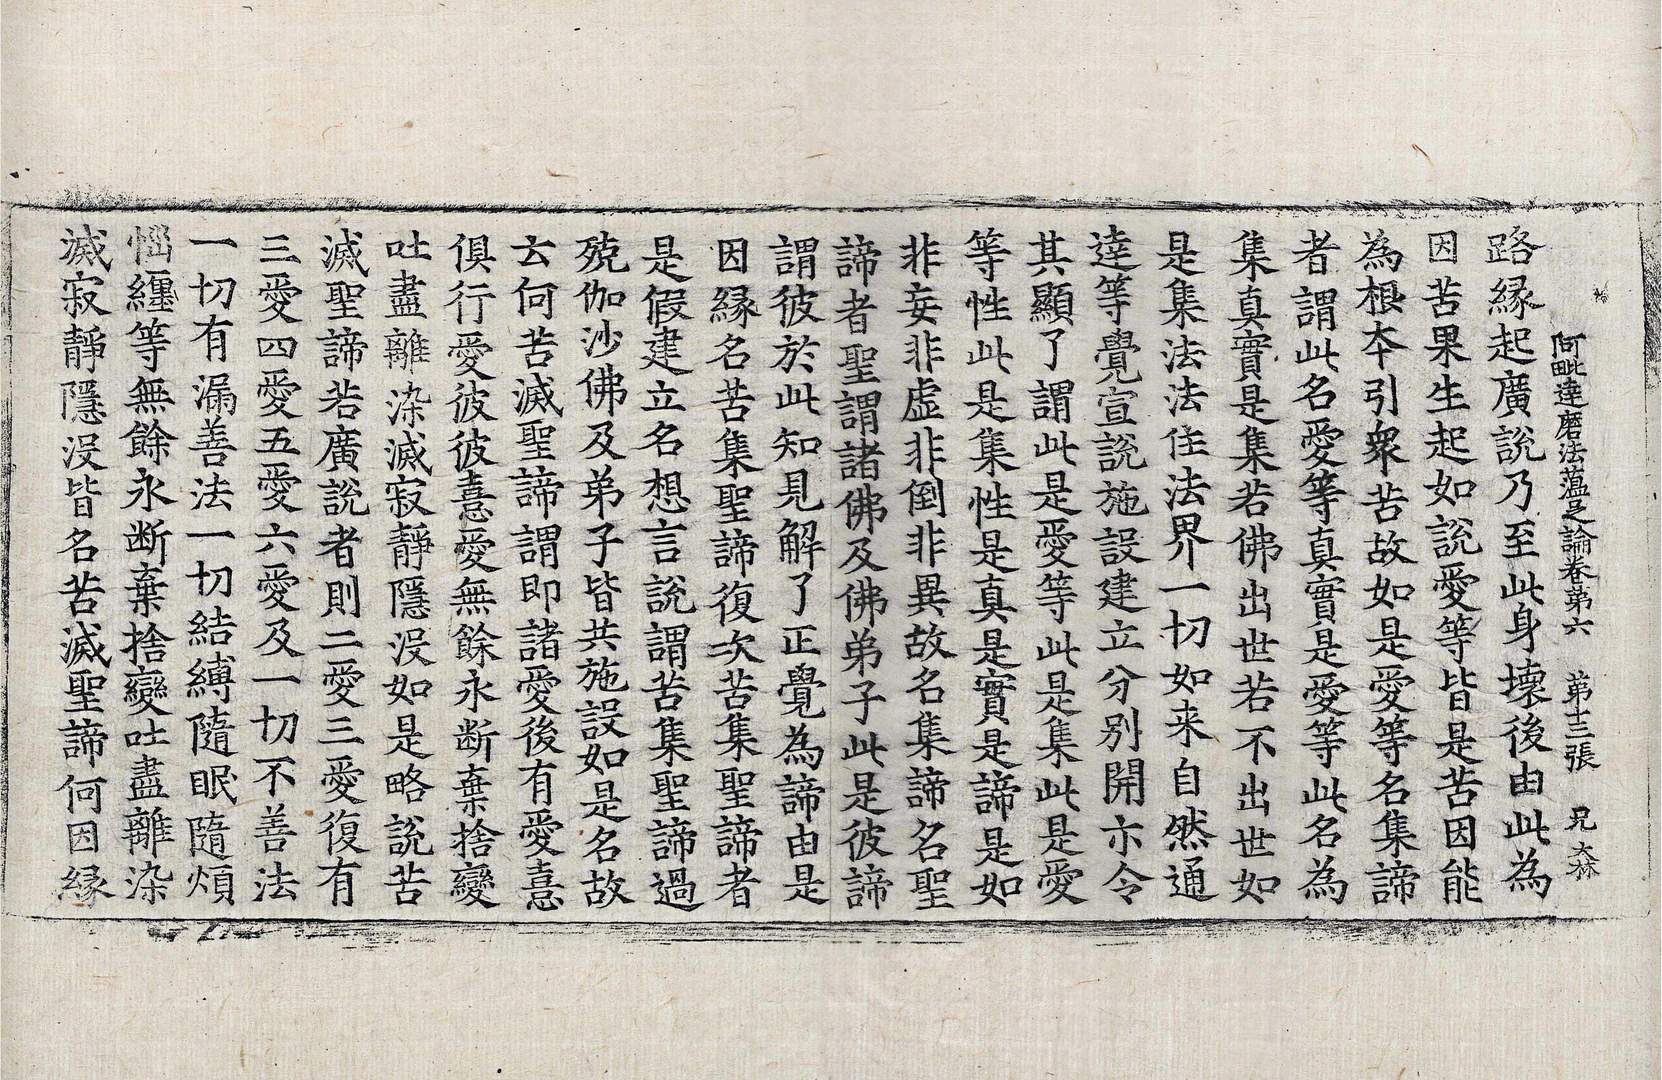 阿毗達磨法蘊足論卷第六　第十三張　兄　大林
路縁起廣說乃至此身壞後由此為
因苦果生起如說愛等皆是苦因能
為根本引衆苦故如是愛等名集諦
者謂此名愛等真實是愛等此名為
集真實是集若佛出世若不出世如
是集法法住法界一切如来自然通
達等覺宣說施設建立分別開示令
其顯了謂此是愛等此是集此是愛
等性此是集性是真是實是諦是如
非妄非虛非倒非異故名集諦名聖
諦者聖謂諸佛及佛弟子此是彼諦
謂彼於此知見解了正覺為諦由是
因縁名苦集聖諦復次苦集聖諦者
是假建立名想言說謂苦集聖諦過
殑伽沙佛及弟子皆共施設如是名故
云何苦滅聖諦謂即諸愛後有愛憙
俱行愛彼彼憙愛無餘永断棄捨變
吐盡離染滅寂靜隱没如是略說苦
滅聖諦若廣說者則二愛三愛復有
三愛四愛五愛六愛及一切不善法
一切有漏善法一切結縛隨眠隨煩
惱纏等無餘永断棄捨變吐盡離染
滅寂靜隱没皆名苦滅聖諦何因縁